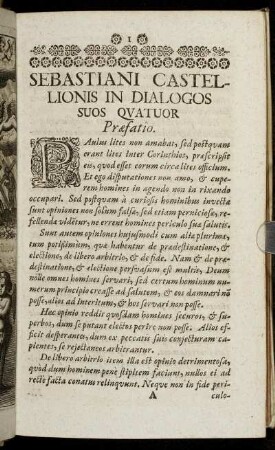 1
SEBASTIANI CASTEL-
LIONIS IN DIALOGOS
SUOS QVATUOR
Præfatio.
PAulus lites non amabat, sed postquam
erant lites inter Corinthios, præscripsit
eis, quod esset eorum circa lites officium.
Et ego disputationes non amo, & cupe-
rem homines in agendo non in rixando
occupari. Sed postquam à curiosis hominibus invectæ
sunt opiniones non solum falsæ, sed etiam perniciosæ, re-
fellendæ vidētur, ne errent homines periculo suæ salutis.
Sunt autem opiniones hujusmodi cum aliæ plurimæ,
tum potissimum, quæ habentur de prædestinatione, &
electione, de libero arbitrio, & de fide. Nam & de præ-
destinatione, & electione persuasum est multis, Deum
nolle omnes homines servari, sed certum hominum nu-
merum principio creasse ad salutem, & eos damnari nō
posse, alios ad interitum, & hos servari non posse.
Hæc opinio reddit quosdam homines securos, & su-
perbos, dum se putant electos perire non posse. Alios ef-
ficit desperatos, dum ex peccatis suis conjecturam ca-
pientes, se rejectaneos arbitrantur.
De libero arbitrio item illa est opinio detrimentosa,
quòd dum hominem penè stipitem faciunt, nullos ei ad
rectè facta conatus relinquunt. Neque non in fide peri-
A culo-